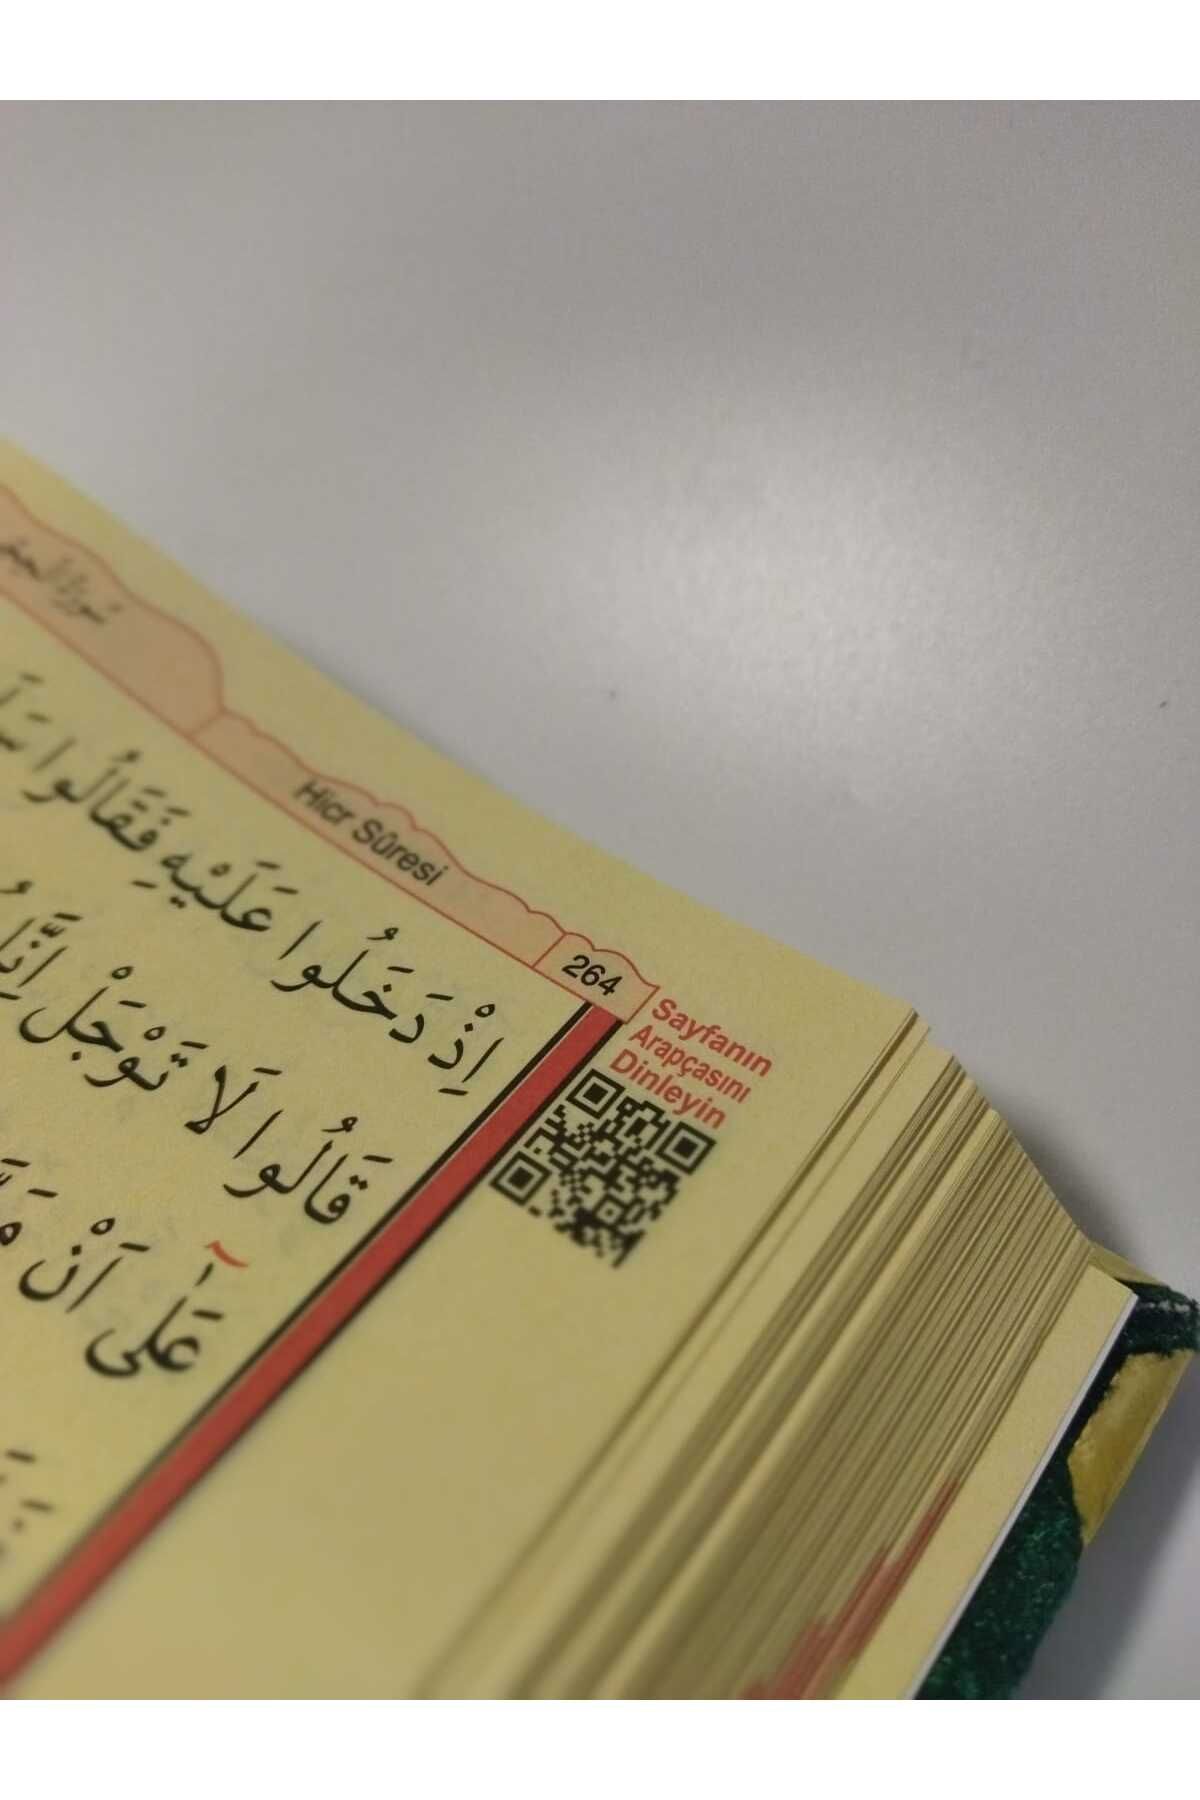 سُورَةُ الْحِجْرِ
Hicr Sûresi
264
Sayfanın
Arapçasını
Dinleyin
اِذْ دَخَلُوا عَلَيْهِ فَقَالُوا
قَالُوا لَا تَوْجَلْ اِنَّا
عَلٰٓى اَنْ